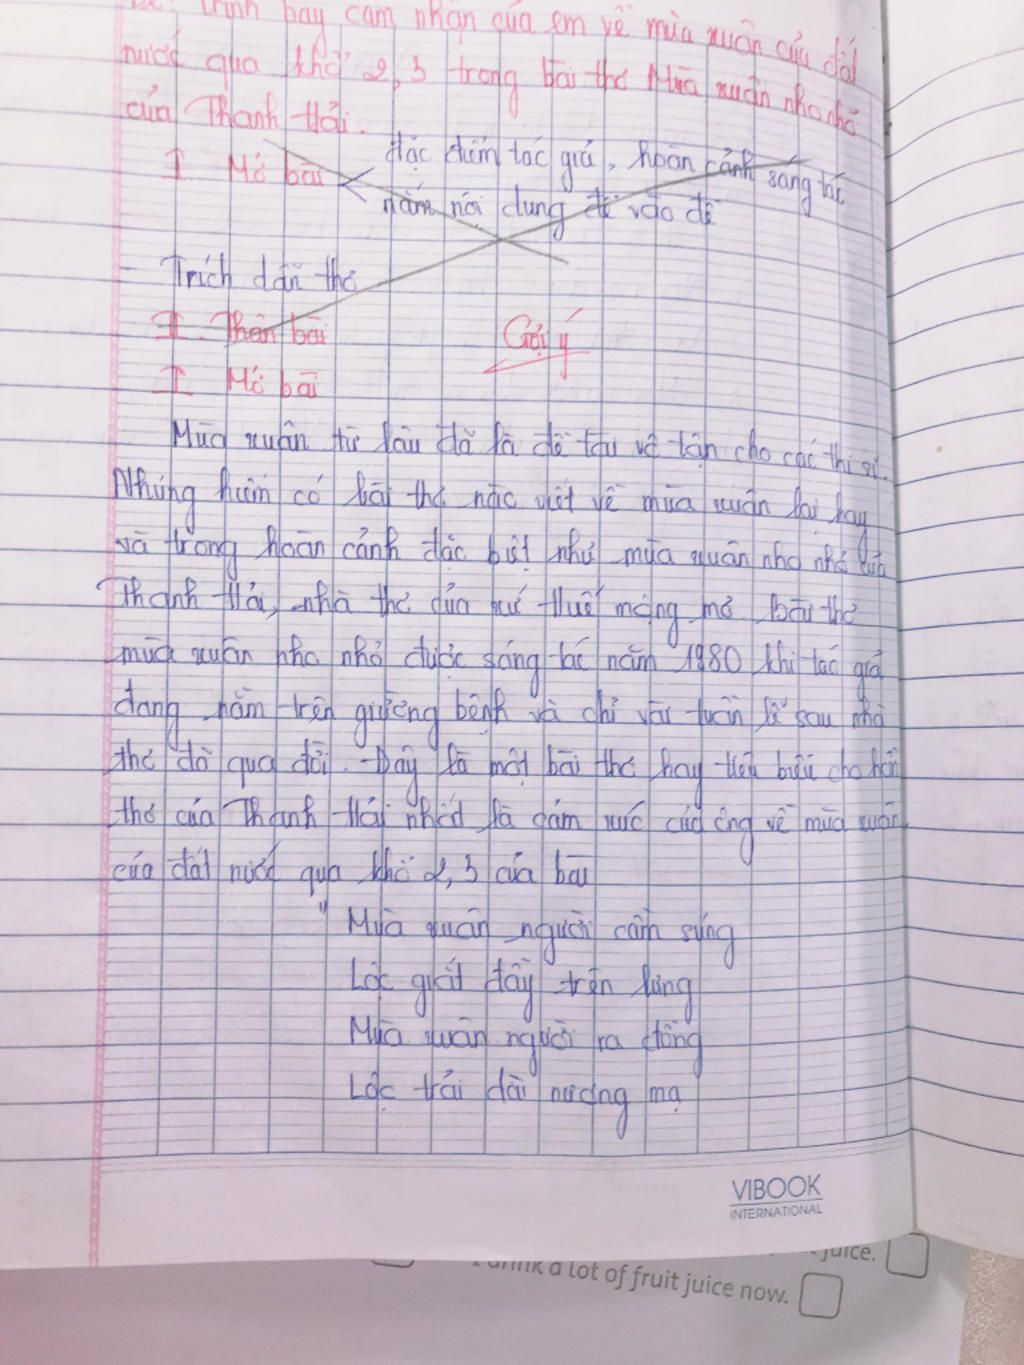 Đề: Trình bày cảm nhận của em về mùa xuân của đất
nước qua khổ 2, 3 trong bài thơ Mùa xuân nho nhỏ
của Thanh Hải.
I Mở bài
đặc điểm tác giả, hoàn cảnh sáng tác
nắm nội dung để vào đề
Trích dẫn thơ
II. Thân bài
Gợi ý
I Mở bài
Mùa xuân từ lâu đã là đề tài vô tận cho các thi sĩ.
Nhưng hiếm có bài thơ nào viết về mùa xuân lại hay
và trong hoàn cảnh đặc biệt như mùa xuân nho nhỏ của
Thanh Hải, nhà thơ của xứ Huế mộng mơ. bài thơ
mùa xuân nho nhỏ được sáng tác năm 1980 khi tác giả
đang nằm trên giường bệnh và chỉ vài tuần lễ sau nhà
thơ đã qua đời. Đây là một bài thơ hay tiêu biểu cho hồn
thơ của Thanh Hải nhất là cảm xúc của ông về mùa xuân
của đất nước qua khổ 2, 3 của bài
"Mùa xuân người cầm súng
Lộc giắt đầy trên lưng
Mùa xuân người ra đồng
Lộc trải dài nương mạ
VIBOOK
INTERNATIONAL
juice.
I drink a lot of fruit juice now.